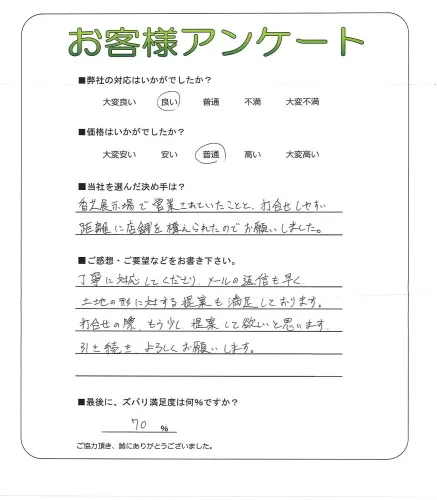 お客様アンケート
■弊社の対応はいかがでしたか？
大変良い 良い 普通 不満 大変不満
■価格はいかがでしたか？
大変安い 安い 普通 高い 大変高い
■当社を選んだ決め手は？
展示場で営業されていたことと、打合せしやすい
距離に店舗を構えられたのでお願いしました。
■ご感想・ご要望などをお書き下さい。
丁寧に対応してくださり、メールの返信も早く、
土地の形に対する提案も満足しております。
打合せの際、もう少し提案して欲しいと思います。
引き続き、よろしくお願いします。
■最後に、ズバリ満足度は何%ですか？
70 %
ご協力頂き、誠にありがとうございました。